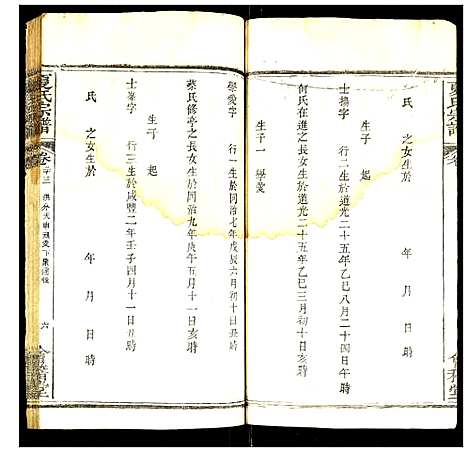 夏氏宗譜
卷
氏 之女生於 年 月 日 時
生子 起
士 字 行二生於道光二十五年乙巳八月二十四日午時
何氏在進之長女生於道光二十五年乙巳三月初十日亥時
生子一 學愛
學愛字 行一生於同治七年戊辰六月初十日丑時
蔡氏修亭之長女生於同治九年庚午五月十一日亥時
生子 起
士 字 行三生於咸豐二年壬子四月十一日 時
氏 之女生於 年 月 日 時
夏氏宗譜
卷
六
會 堂